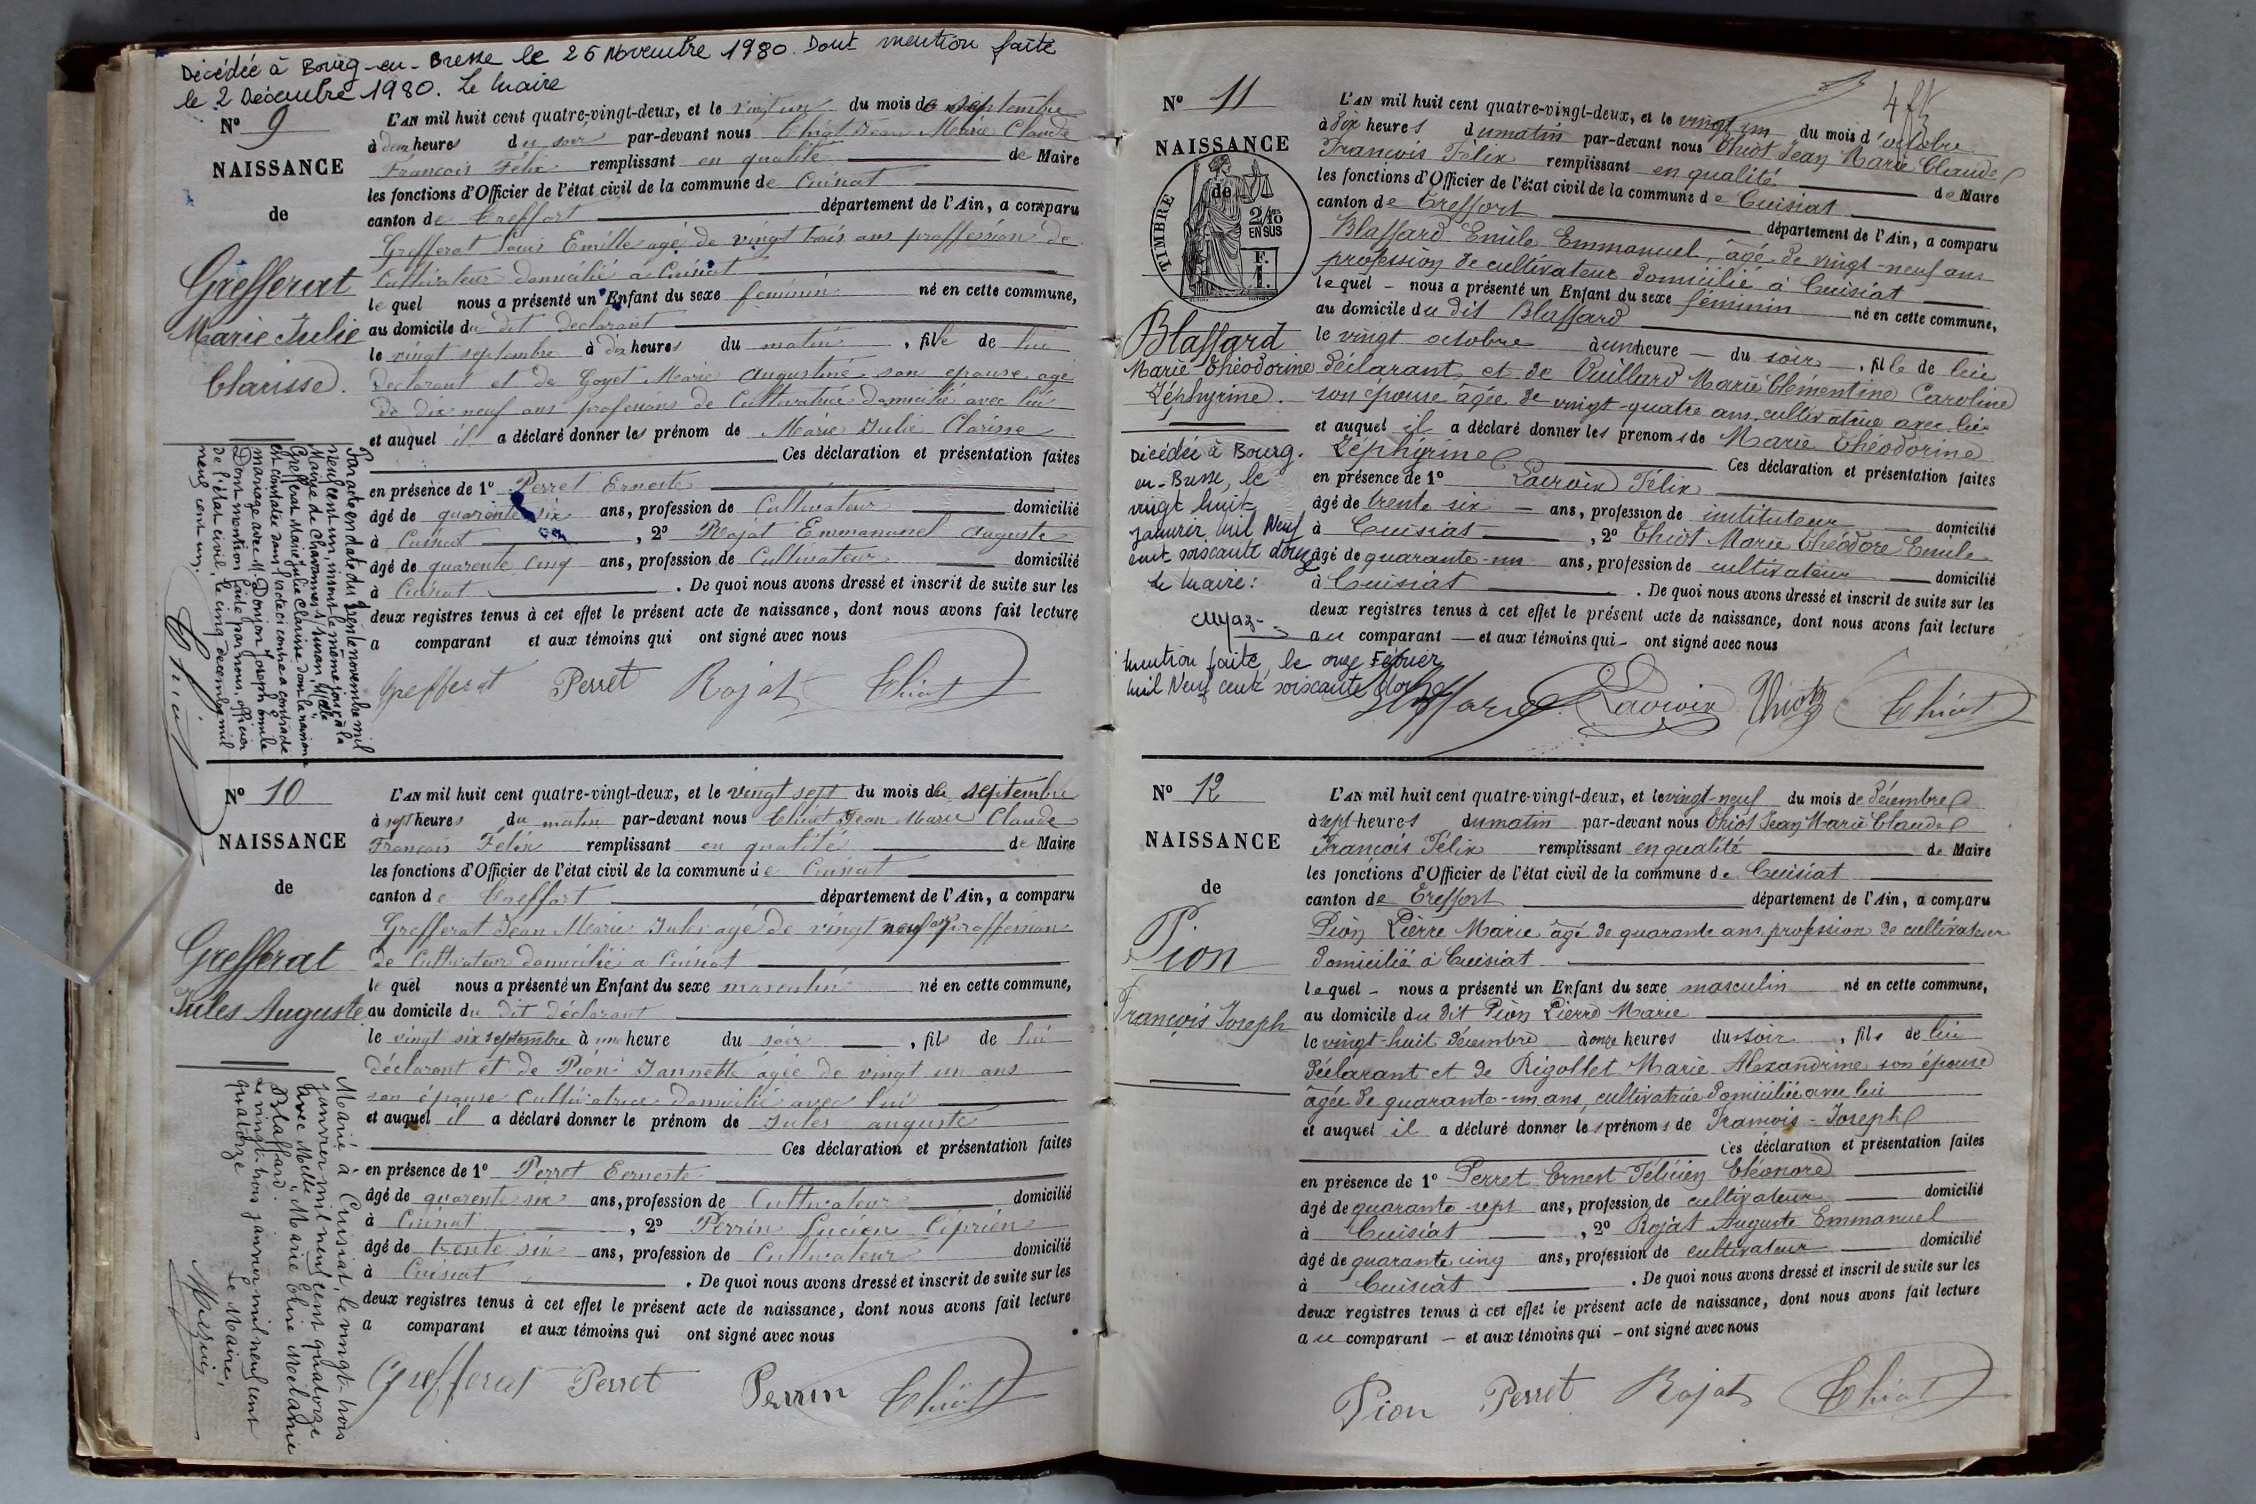 Décédée à Bourg-en-Bresse le 26 Novembre 1980. Dont mention faite
le 2 Décembre 1980. Le Maire
N° 9
NAISSANCE
de
Grefferat
Marie Julie
Clarisse.
L'AN mil huit cent quatre-vingt-deux, et le vingt un du mois de septembre
à deux heures du soir par-devant nous Chiot Jean Marie Claude
François Félix remplissant en qualité de Maire
les fonctions d'Officier de l'état civil de la commune de Cuisiat
canton de Treffort département de l'Ain, a comparu
Grefferat Louis Emille agé de vingt trois ans proffession de
Cultivateur domicilié a Cuisiat
le quel nous a présenté un Enfant du sexe feminin né en cette commune,
au domicile du dit declarant
le vingt septembre à dix heures du matin, fille de lui
declarant et de Goyet Marie Augustine son epouse agé
de dix neuf ans profession de Cultivatrice domicilié avec lui
et auquel il a déclaré donner les prénom de Marie Julie Clarisse
Ces déclaration et présentation faites
en présence de 1° Perret Erneste
âgé de quarente six ans, profession de Cultivateur domicilié
à Cuisiat, 2° Rojat Emmanuel Auguste
âgé de quarente cinq ans, profession de Cultivateur domicilié
à Cuisiat. De quoi nous avons dressé et inscrit de suite sur les
deux registres tenus à cet effet le présent acte de naissance, dont nous avons fait lecture
a comparant et aux témoins qui ont signé avec nous
Grefferat Perret Rojat Chiot
Par acte en date du trente novembre mil
neuf cent un, inscrit le même jour à la
Mairie de Chavannes s/ Suran, Mlle
Grefferat Marie Julie Clarisse dont la naissance
est constatée dans l'acte ci contre a contracté
mariage avec M. Donjon Joseph Emile
Dont mention faite par nous, officier
de l'état civil, le cinq décembre mil
neuf cent un.
Chiot
N° 10
NAISSANCE
de
Grefferat
Jules Auguste
L'AN mil huit cent quatre-vingt-deux, et le vingt sept du mois de septembre
à sept heures du matin par-devant nous Chiot Jean Marie Claude
François Félix remplissant en qualité de Maire
les fonctions d'Officier de l'état civil de la commune de Cuisiat
canton de Treffort département de l'Ain, a comparu
Grefferat Jean Marie Jules agé de vingt neuf ans proffession
de Cultivateur domicilié a Cuisiat
le quel nous a présenté un Enfant du sexe masculin né en cette commune,
au domicile du dit déclarant
le vingt six septembre à une heure du soir, fils de lui
déclarant et de Pion Jannette agée de vingt un ans
son épouse Cultivatrice domicilié avec lui
et auquel il a déclaré donner le prénom de Jules auguste
Ces déclaration et présentation faites
en présence de 1° Perret Eerneste
âgé de quarente six ans, profession de Cultivateur domicilié
à Cuisiat, 2° Perrin Lucien Ciprien
âgé de trente six ans, profession de Cultivateur domicilié
à Cuisiat. De quoi nous avons dressé et inscrit de suite sur les
deux registres tenus à cet effet le présent acte de naissance, dont nous avons fait lecture
a comparant et aux témoins qui ont signé avec nous
Grefferat Perret Perrin Chiot
Marié à Cuisiat, le vingt-trois
janvier mil neuf cent quatorze
avec Melle Marie Claire Mélanie
Blaffard.
Le vingt-trois janvier mil neuf cent
quatorze
Le Maire,
N° 11
NAISSANCE
de
TIMBRE
2/10
EN SUS
F.
1.
Blaffard
Marie Théodorine
Zéphyrine.
L'AN mil huit cent quatre-vingt-deux, et le vingt un du mois d'octobre
à dix heures du matin par-devant nous Chiot Jean Marie Claude
François Félix remplissant en qualité de Maire
les fonctions d'Officier de l'état civil de la commune de Cuisiat
canton de Treffort département de l'Ain, a comparu
Blaffard Emile Emmanuel, âgé de vingt-neuf ans
profession de cultivateur domicilié à Cuisiat
le quel - nous a présenté un Enfant du sexe féminin né en cette commune,
au domicile du dit Blaffard
le vingt octobre à une heure - du soir, fille de lui
déclarant, et de Vuillard Marie Clémentine Caroline
son épouse âgée de vingt-quatre ans, cultivatrice avec lui
et auquel il a déclaré donner les prenoms de Marie Théodorine
Zéphirine Ces déclaration et présentation faites
en présence de 1° Lacroix Félix
âgé de trente six - ans, profession de instituteur domicilié
à Cuisiat, 2° Chiot Marie Théodore Emile
âgé de quarante-un ans, profession de cultivateur domicilié
à Cuisiat. De quoi nous avons dressé et inscrit de suite sur les
deux registres tenus à cet effet le présent acte de naissance, dont nous avons fait lecture
au comparant - et aux témoins qui - ont signé avec nous
Blaffard Lacroix Chiot Chiot
Décédée à Bourg-
en-Bresse, le
vingt huit
Janvier Mil Neuf
cent soixante douze
Le Maire:
Mention faite, le onze Février
Mil Neuf cent soixante douze
N° 12
NAISSANCE
de
Pion
François Joseph
L'AN mil huit cent quatre-vingt-deux, et le vingt-neuf du mois de Décembre
à sept heures du matin par-devant nous Chiot Jean Marie Claude
François Félix remplissant en qualité de Maire
les fonctions d'Officier de l'état civil de la commune de Cuisiat
canton de Treffort département de l'Ain, a comparu
Pion Pierre Marie âgé de quarante ans, profession de cultivateur
domicilié à Cuisiat
le quel - nous a présenté un Enfant du sexe masculin né en cette commune,
au domicile du dit Pion Pierre Marie
le vingt-huit Décembre à onze heures du soir, fils de lui
déclarant et de Rigollet Marie Alexandrine son épouse
âgée de quarante-un ans, cultivatrice domiciliée avec lui
et auquel il a déclaré donner les prénoms de François-Joseph
Ces déclaration et présentation faites
en présence de 1° Perret Ernest Félicien Eléonore
âgé de quarante-sept ans, profession de cultivateur domicilié
à Cuisiat, 2° Rojat Auguste Emmanuel
âgé de quarante cinq ans, profession de cultivateur domicilié
à Cuisiat. De quoi nous avons dressé et inscrit de suite sur les
deux registres tenus à cet effet le présent acte de naissance, dont nous avons fait lecture
au comparant - et aux témoins qui - ont signé avec nous
Pion Perret Rojat Chiot